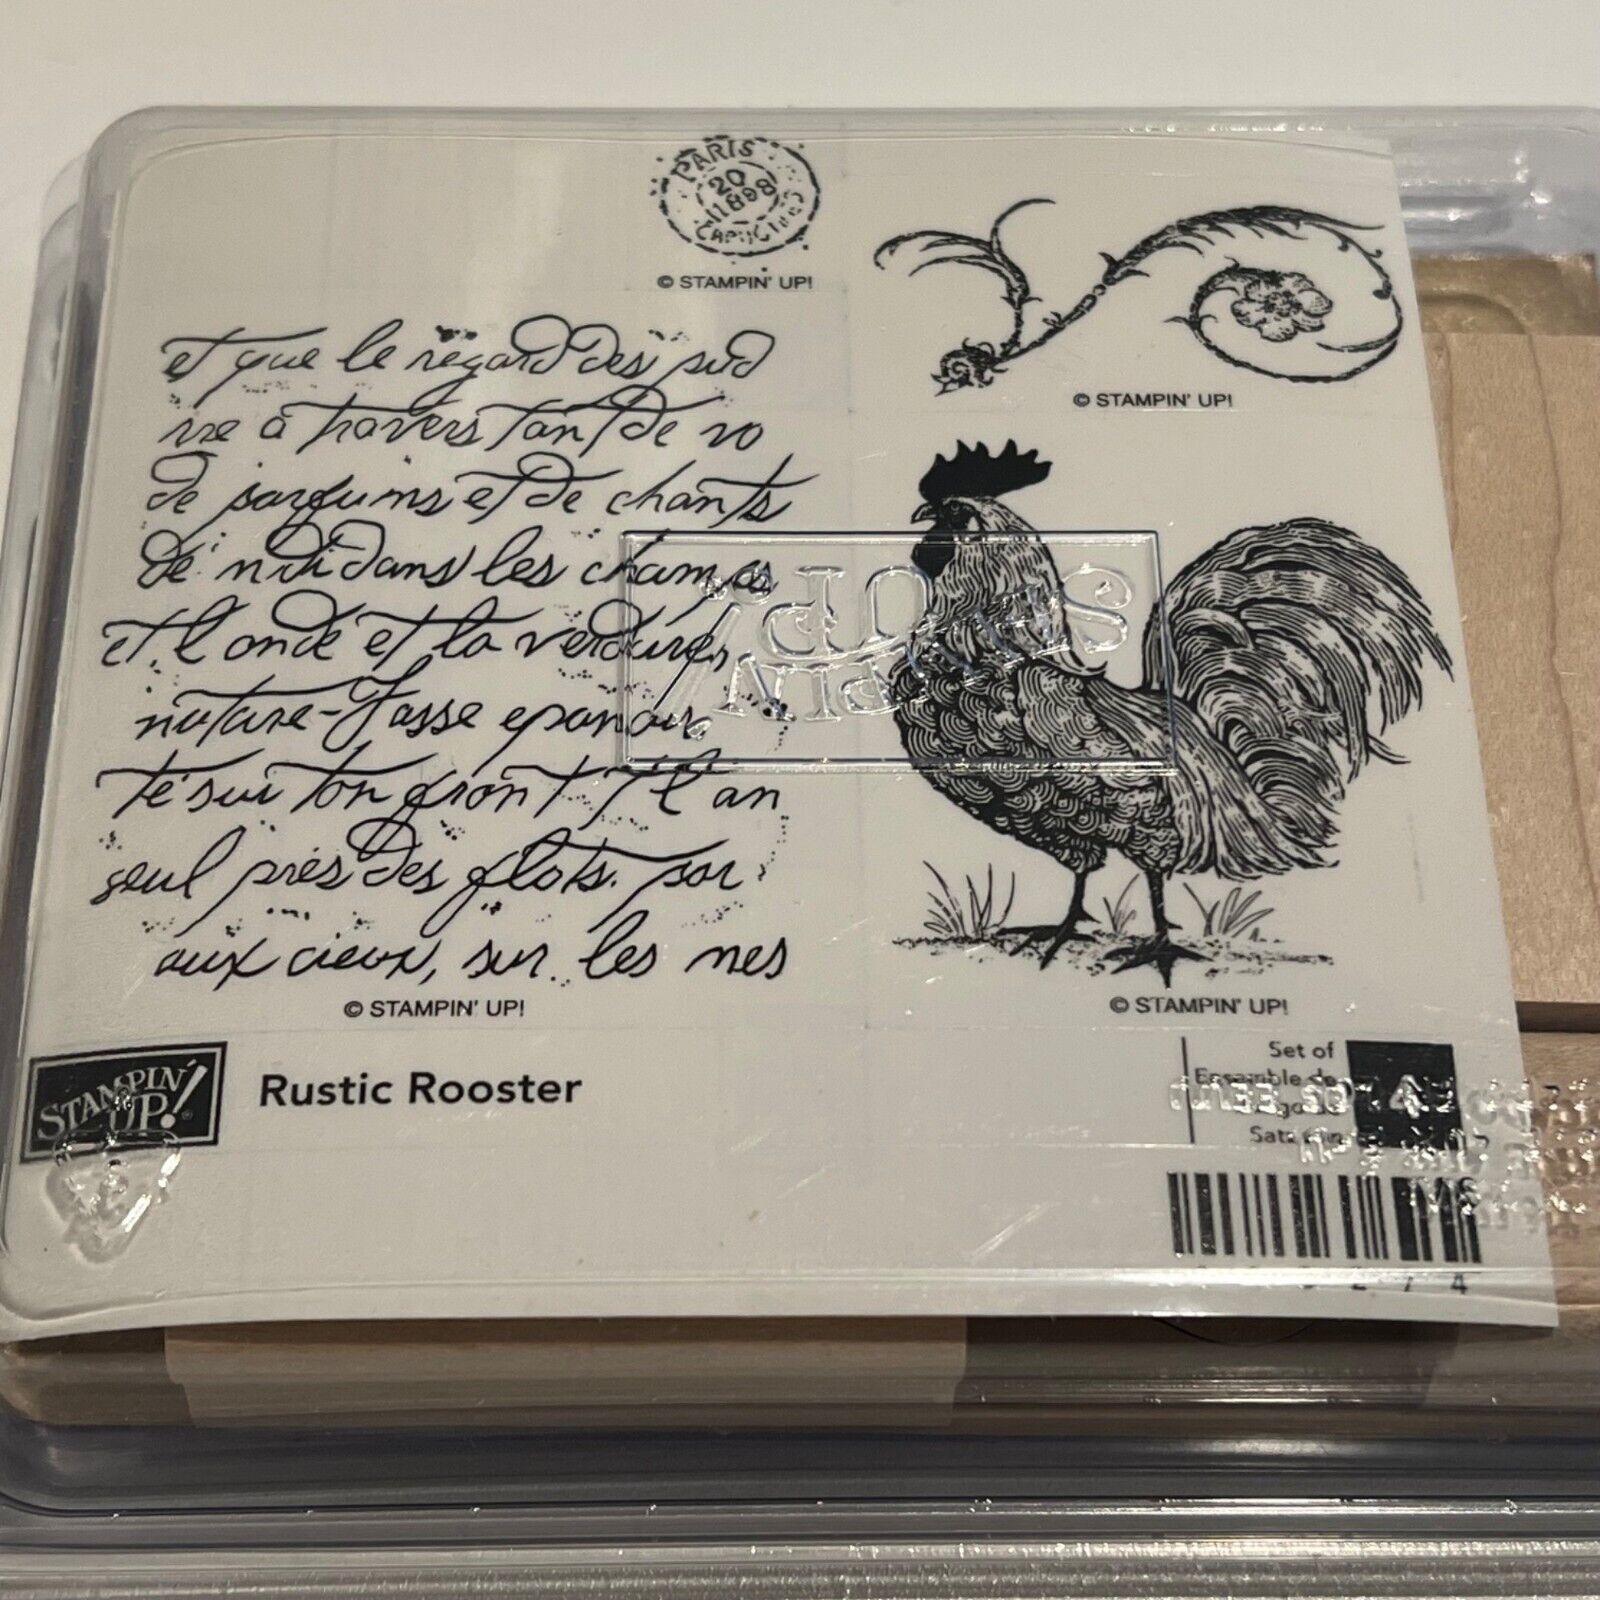 PARIS
20
1898
CAPUCINES
© STAMPIN' UP!
© STAMPIN' UP!
et que le regard des sud
rre à travers tant de vo
de parfums et de chants
de midi dans les champs
et l'onde et la verdures
nature - fasse epanouir
té sur ton front l'an
seul près des flots. par
aux cieux, sur les mes
© STAMPIN' UP!
© STAMPIN' UP!
STAMPIN' UP!
STAMPIN' UP!
Rustic Rooster
Set of
Ensemble de
4